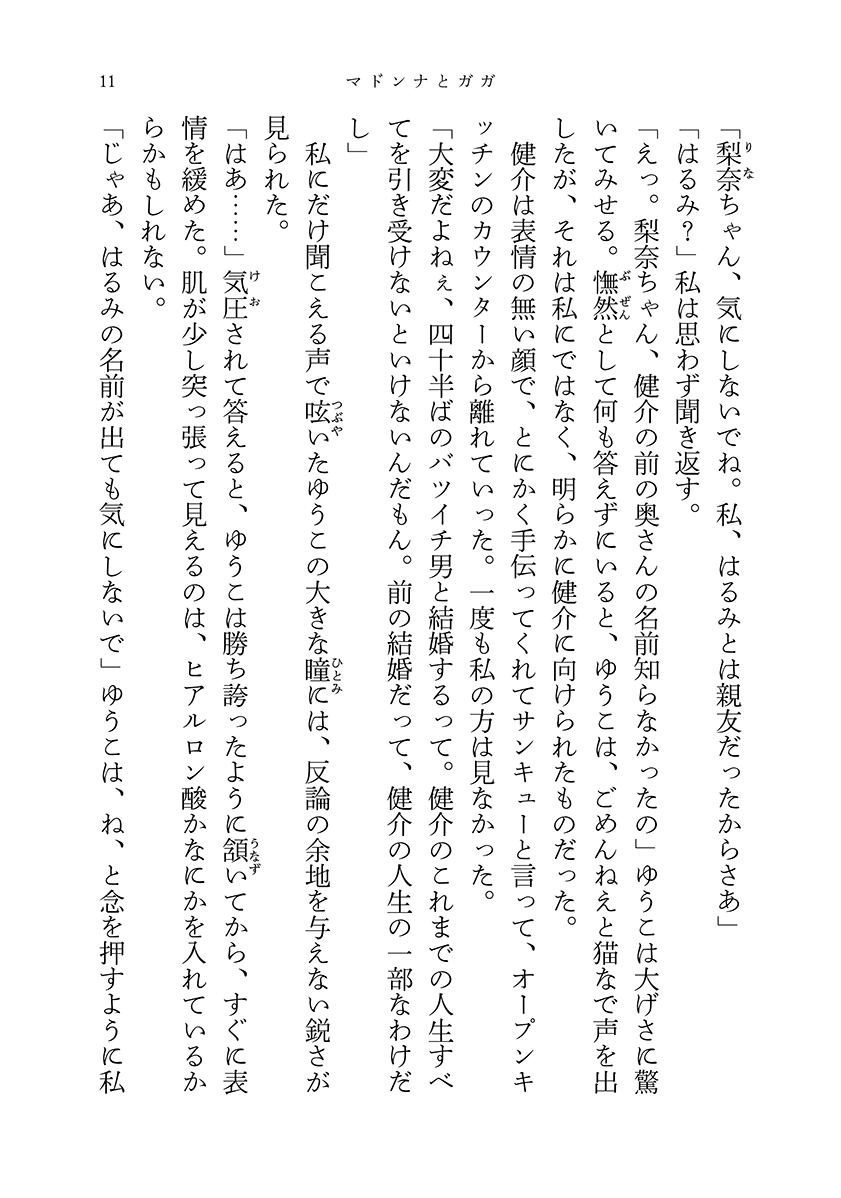 11
マドンナとガガ
「梨奈ちゃん、気にしないでね。私、はるみとは親友だったからさあ」
「はるみ？」私は思わず聞き返す。
「えっ。梨奈ちゃん、健介の前の奥さんの名前知らなかったの」ゆうこは大げさに驚
いてみせる。憮然として何も答えずにいると、ゆうこは、ごめんねえと猫なで声を出
したが、それは私にではなく、明らかに健介に向けられたものだった。
健介は表情の無い顔で、とにかく手伝ってくれてサンキューと言って、オープンキ
ッチンのカウンターから離れていった。一度も私の方は見なかった。
「大変だよねぇ、四十半ばのバツイチ男と結婚するって。健介のこれまでの人生すべ
てを引き受けないといけないんだもん。前の結婚だって、健介の人生の一部なわけだ
し」
私にだけ聞こえる声で呟いたゆうこの大きな瞳には、反論の余地を与えない鋭さが
見られた。
「はあ……」気圧されて答えると、ゆうこは勝ち誇ったように頷いてから、すぐに表
情を緩めた。肌が少し突っ張って見えるのは、ヒアルロン酸かなにかを入れているか
らかもしれない。
「じゃあ、はるみの名前が出ても気にしないで」ゆうこは、ね、と念を押すように私